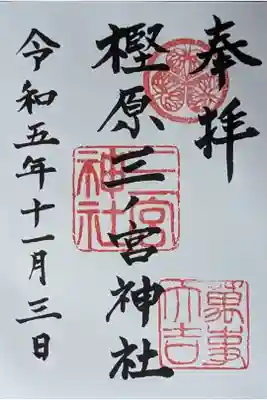 奉拝
樫原三ノ宮神社
令和五年十一月三日
三宮
神社
萬事
大吉